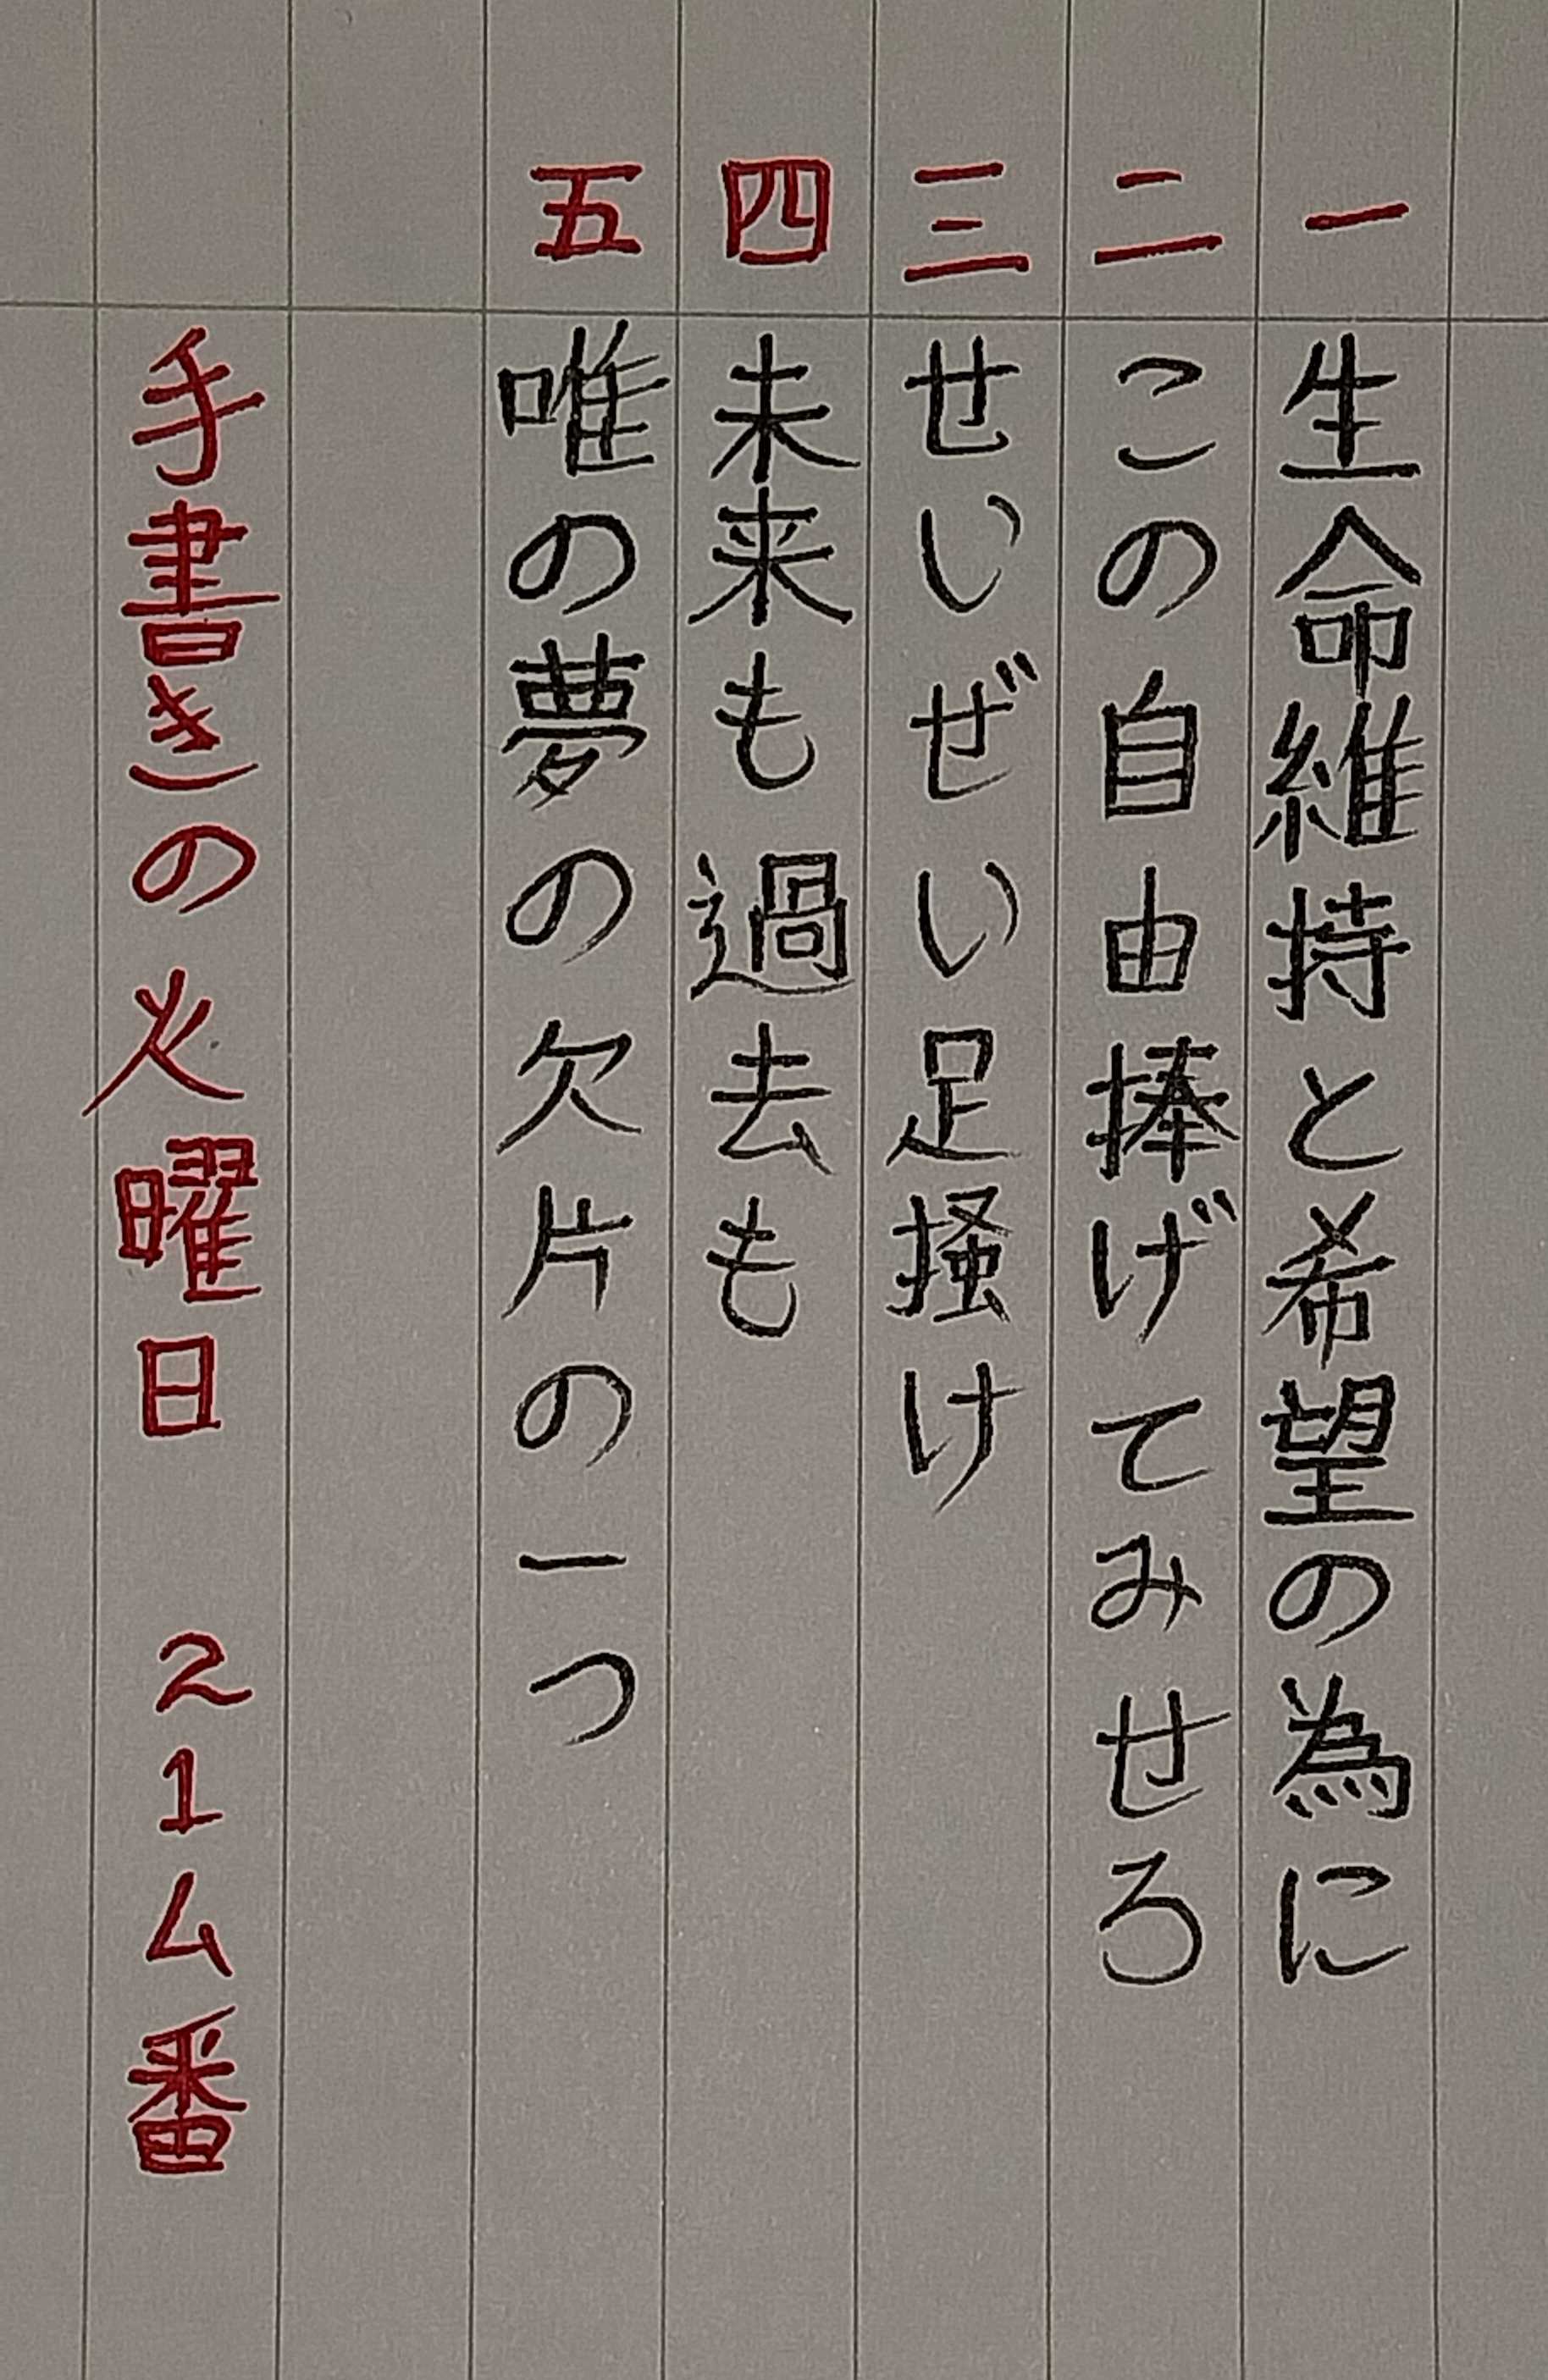 一 生命維持と希望の為に
二 この自由捧げてみせろ
三 せいぜい足掻け
四 未来も過去も
五 唯の夢の欠片の一つ
手書きの火曜日 21ム番